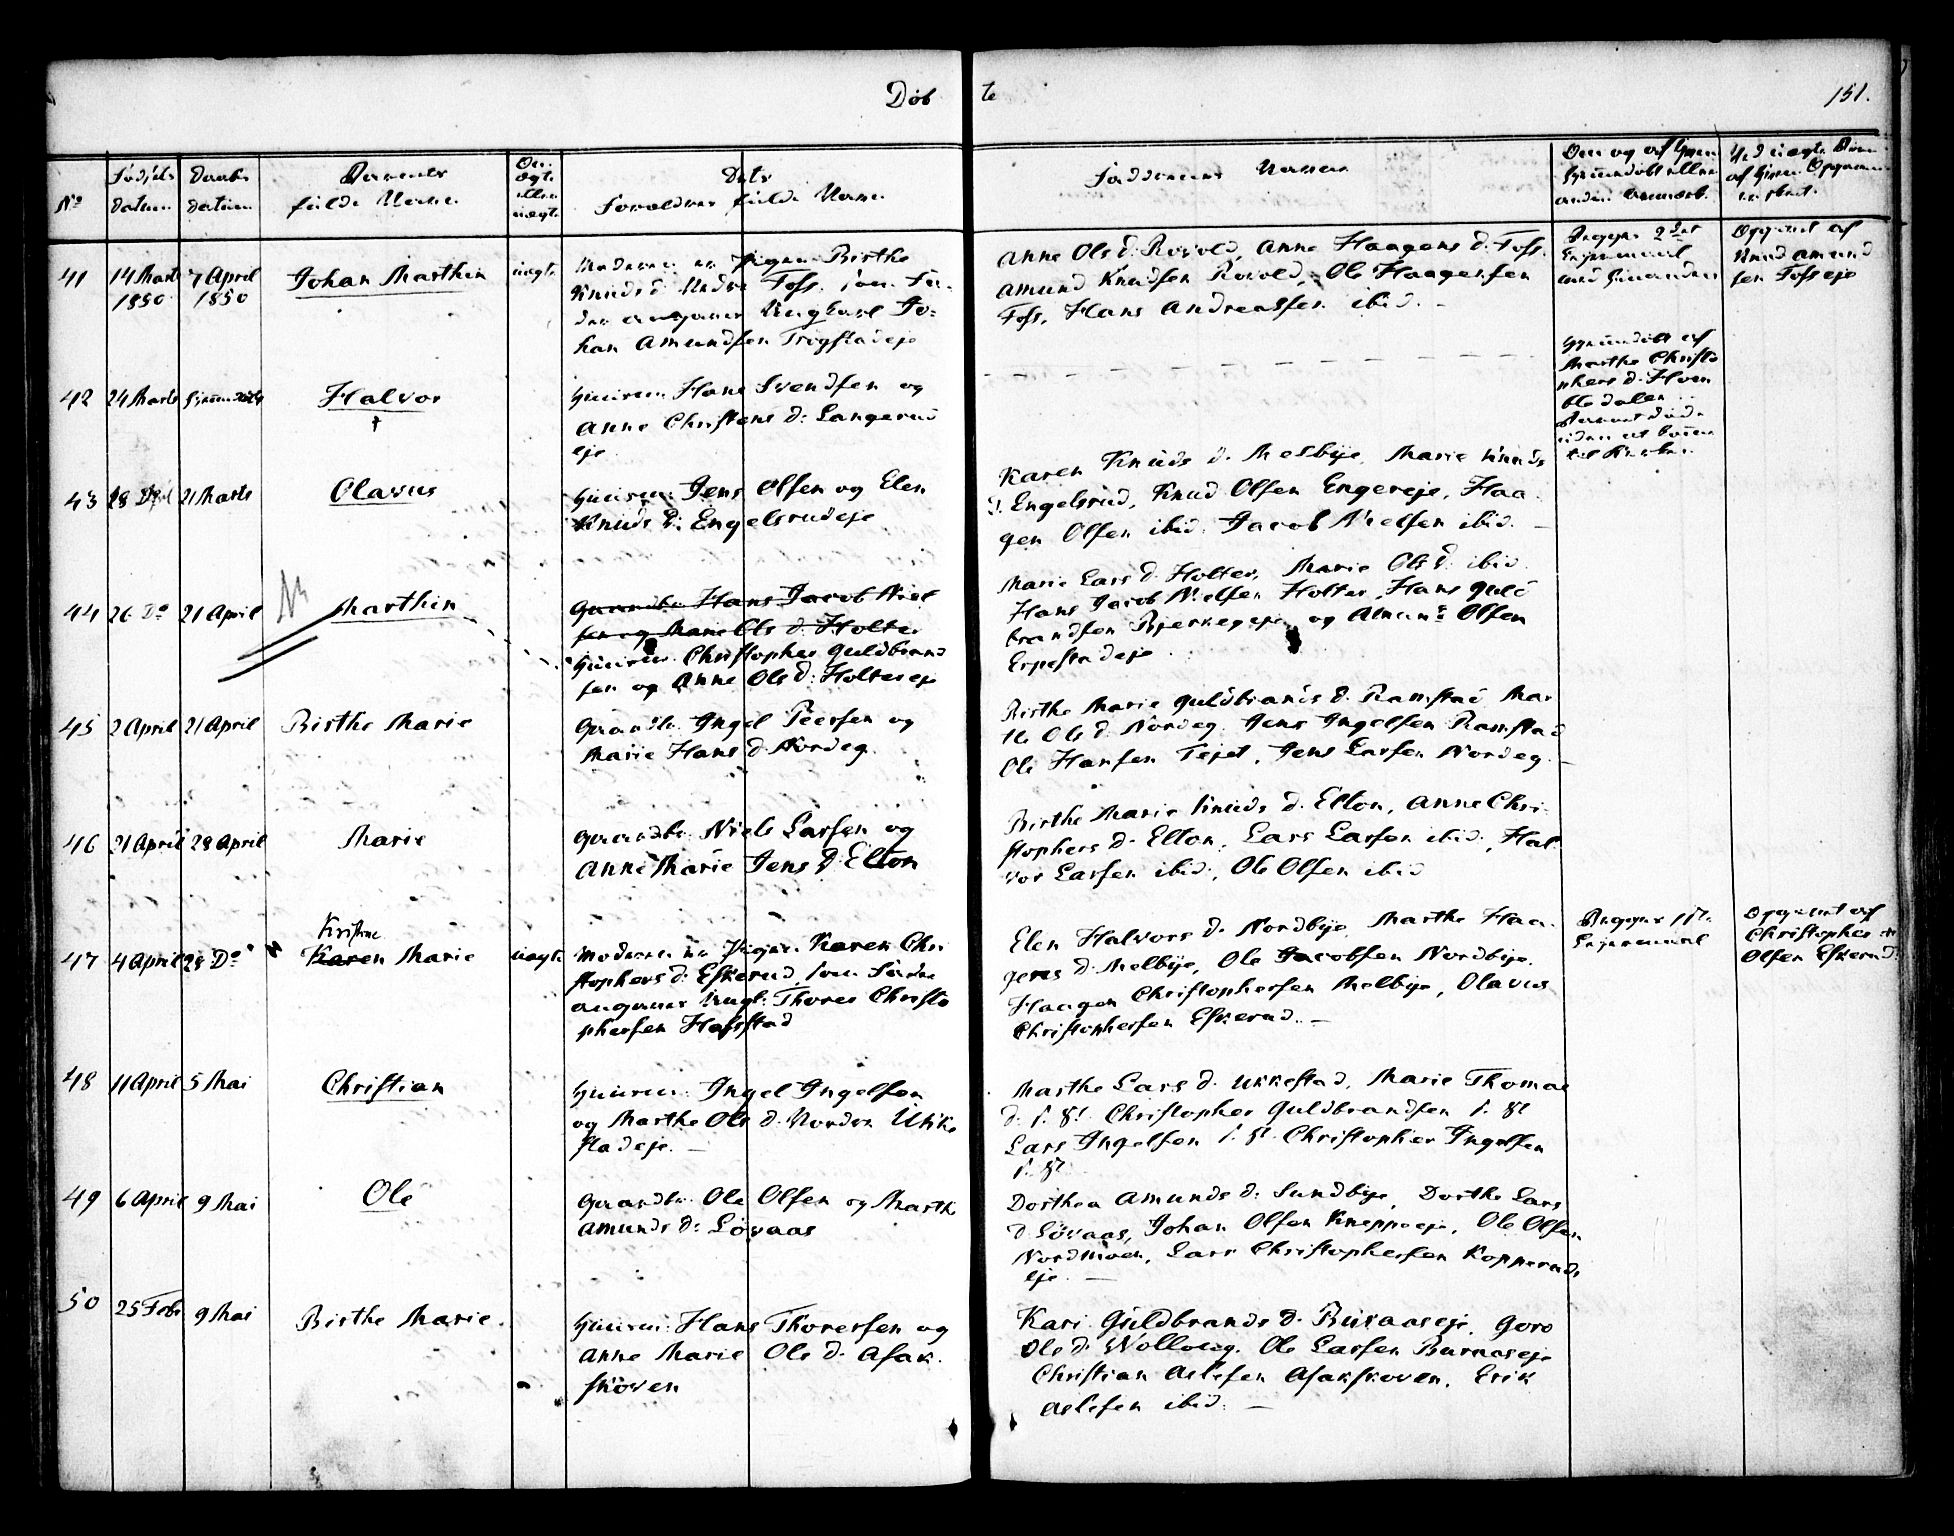 Døb te 151.
No
Fødsels datum
Daabs datum
Barnets fulde Navn
Om ægte eller uægte
Dets Forældres fulde Navne
Faddernes Navne
Om og af hvem hjemmedøbt eller anden Anmærk.
41 14 Marts 1850 7 April 1850 Johan Marthin uægte
Moderen er Pigen Birthe
Knuds d. Nedre Foss. som Fa-
der angiver Ungkarl Jo-
han Amundsen Trøgstadeje
Anne Ols d. Rovold, Anne Haagens d. Foss.
Amund Knudsen Rovold, Ole Haagensen
Foss, Hans Andreassen ibid. -
Begges 2det
Leiermaal
med hinanden
Opgivet af
Knud Amund
sen Fosseje
42 24 Marts Hjemdøbt Halvor
†
Huusm. Hans Svendsen og
Anne Christens d: Langerud
eje
Hjemmedøbt af
Marthe Christo
phers d. Hven
til Kirken
43 28 Dito 21 Marts Olavus
Huusm. Jens Olsen og Elen
Knuds d: Engelsrudeje
Karen Knuds d. Melbye, Marie Knuds
d. Engelsrud, Knud Olsen Engereje, Haa-
gen Olsen ibid. Jacob Nielsen ibid. -
44 26 Do 21 April Marthin
Gaardbr. Hans Jacob Niel
sen og Marie Ols d. Holter
Huusm. Christopher Guldbrand
sen og Anne Ols d: Holtereje
Marie Lars d. Holter, Marie Ols d. ibid.
Hans Jacob Nielsen Holter, Hans Guld
brandsen Bjerkegeje og Amund Olsen
Erpestadeje
45 2 April 21 April Birthe Marie
Gaardbr. Ingel Peersen og
Marie Hans d. Nordeg.
Birthe Marie Guldbrands d. Ramstad Mar
the Ols d. Nordeg. Jens Ingelsen Ramstad
Ole Hansen Tejet, Jens Larsen Nordeg. -
46 21 April 28 April Marie
Gaardbr. Niels Larsen og
Anne Marie Jens d. Elton
Birthe Marie Knuds d. Elton, Anne Chri-
stophers d. Elton, Lars Larsen ibid, Hal
vor Larsen ibid, Ole Olsen ibid
47 4 April 28 Do
Kristine
Karen Marie uægte
Moderen er Pigen Karen Chri
stophers d: Eskerud, som Fader
angiver Ungk: Thorer Christo
phersen Hafstad
Elen Halvors d. Nordbye, Marthe Haa-
gens d. Melbye, Ole Jacobsen Nordbye.
Haagen Christophersen Melbye, Olavus
Christophersen Eskerud. -
Begges 1ste
Leiermaal
Opgivet af
Christopher
Olsen Eskerud
48 11 April 5 Mai Christian
Huusm. Ingel Ingelsen
og Marthe Ols d. Nordre Ukke
stadeje. -
Marthe Lars d. Ukkestad, Marie Thomas
d. s. St. Christopher Guldbrandsen s. St
Lars Ingelsen s. St. Christopher Ingelsen
s. St.
49 6 April 9 Mai Ole
Gaardbr. Ole Olsen og Marthe
Amunds d: Løvaas
Dorthea Amunds d: Sundbye, Dorthe Lars
d Løvaas, Johan Olsen Kneppeeje, Ole Olsen
Nordmoen, Lars Christophersen Kopperuds
eje. -
50 25 Febr 9 Mai Birthe Marie.
Huusm. Hans Thoresen og
Anne Marie Ols d. Asak-
skoven
Kari Guldbrands d. Buraaseje, Goro
Ole d. Nolloug. Ole Larsen Buraaseje
Christian Aslesen Asakskoven, Erik
Aslesen ibid. -